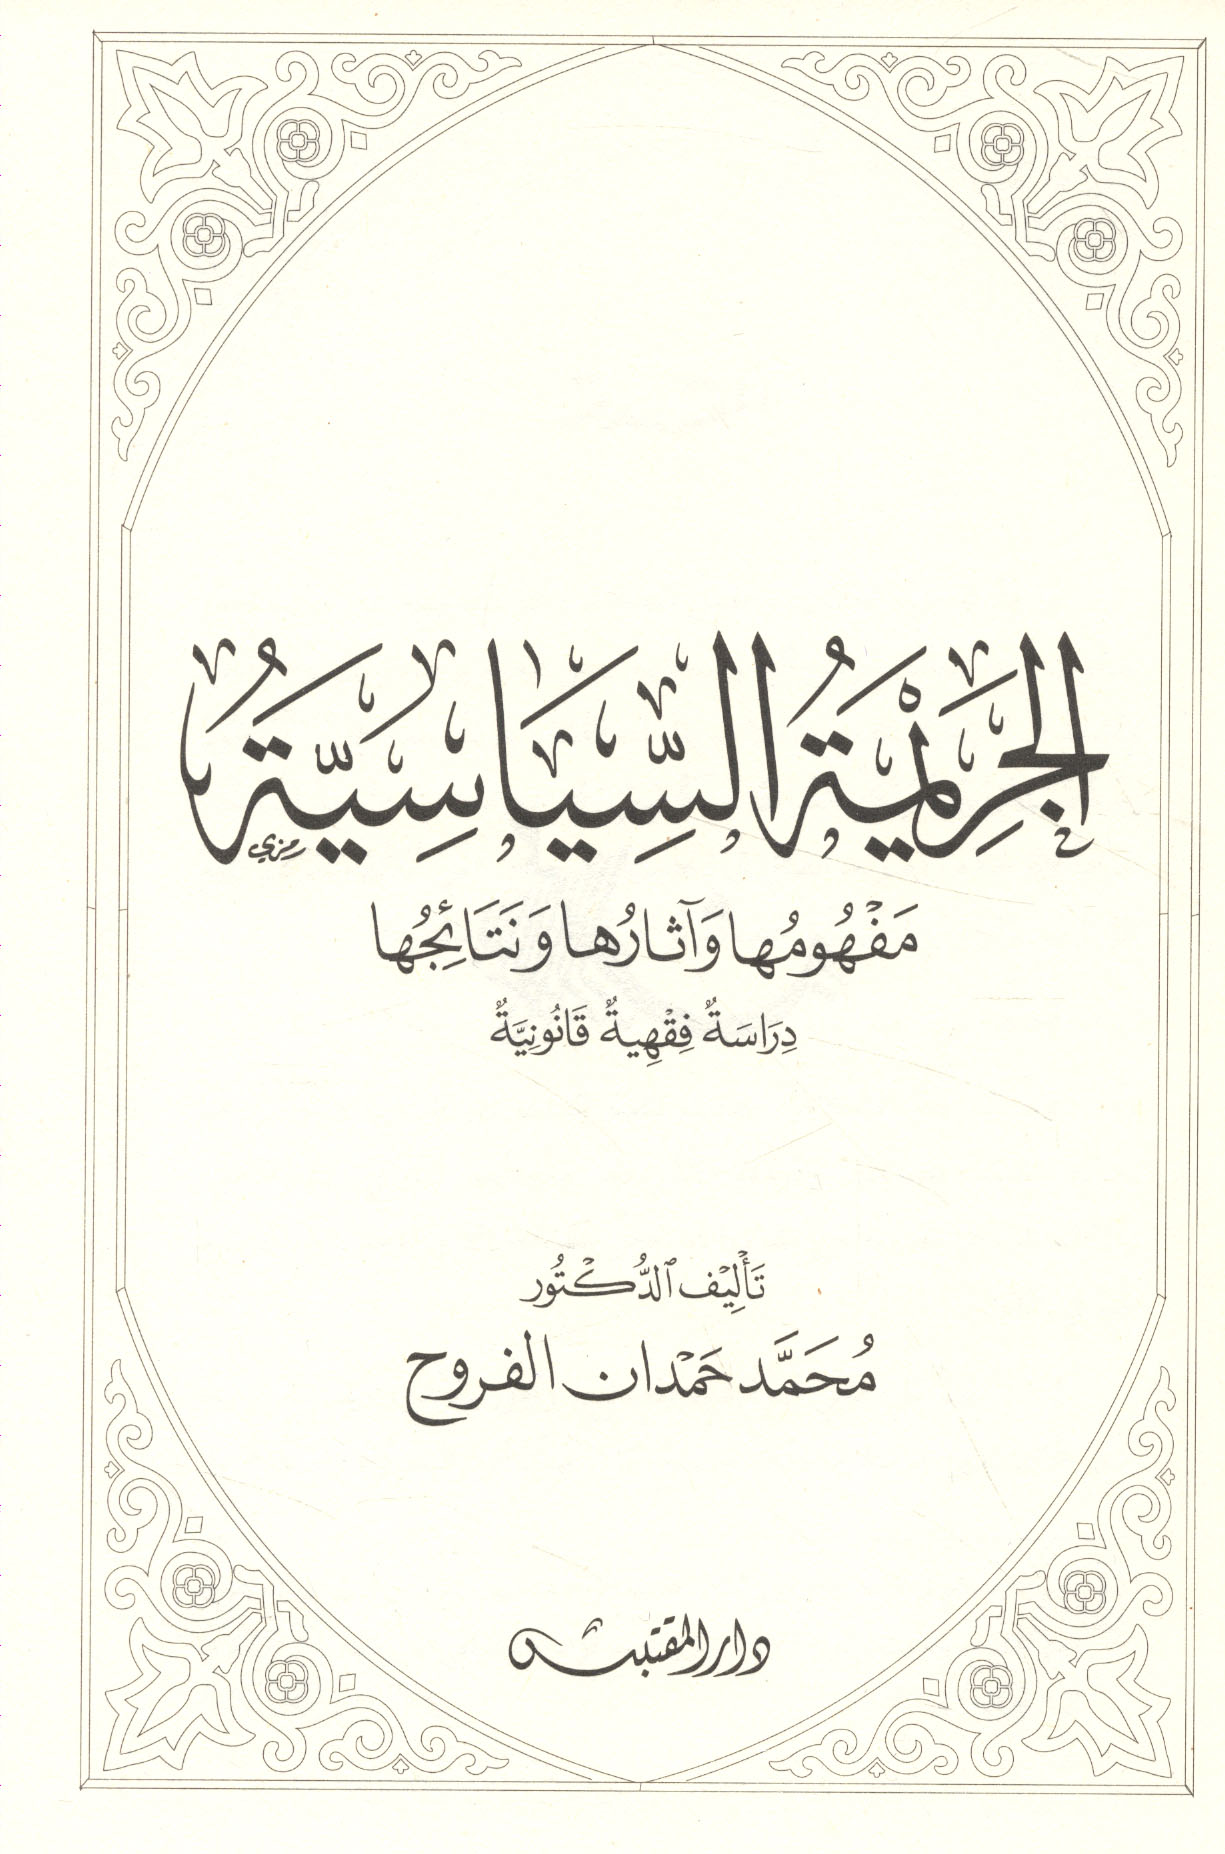 الجَرِيْمَةُ السِّيَاسِيَّةُ
رمزي
مَفْهُومُها وَآثارُها وَنَتَائِجُها
دِرَاسَةٌ فِقْهِيةٌ قَانُونِيَّةٌ
تَأْلِيْف ٱلدُّكْتُور
مُحَمَّد حَمْدان الفروح
دار المقتبس